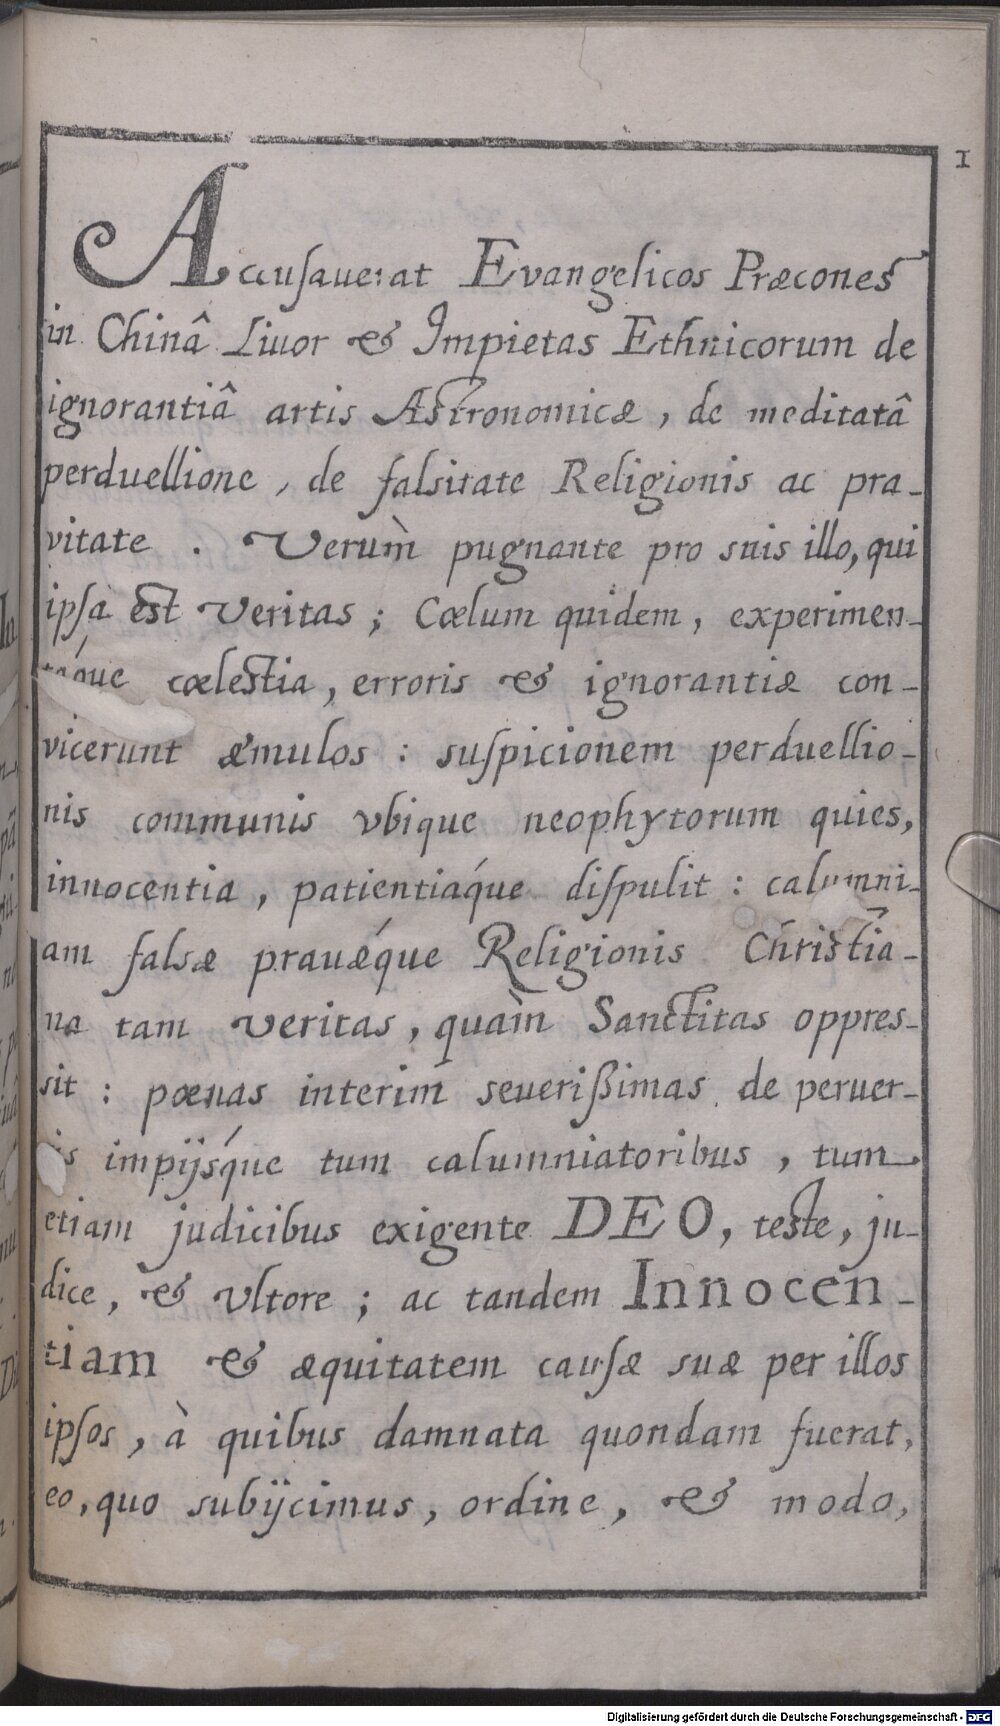 1
Accusauerat Evangelicos Præcones
in Chinâ Livor & Impietas Ethnicorum de
ignorantiâ artis Astronomicæ, de meditatâ
perduellione, de falsitate Religionis ac pra-
vitate. Verùm pugnante pro suis illo, qui
ipsa est Veritas; Cœlum quidem, experimen-
táque cœlestia, erroris & ignorantiæ con-
vicerunt æmulos: suspicionem perduellio-
nis communis vbique neophytorum quies,
innocentia, patientiáque dispulit: calumni-
am falsæ prauǽque Religionis Christia-
na tam veritas, quàm Sanctitas oppres-
sit: pœnas interim seuerißimas de peruer-
is impijsque tum calumniatoribus, tum
etiam judicibus exigente DEO, teste, ju-
dice, & Vltore; ac tandem Innocen-
tiam & æquitatem causæ suæ per illos
ipsos, à quibus damnata quondam fuerat,
eo, quo subijcimus, ordine, & modo,
Digitalisierung gefördert durch die Deutsche Forschungsgemeinschaft - DFG